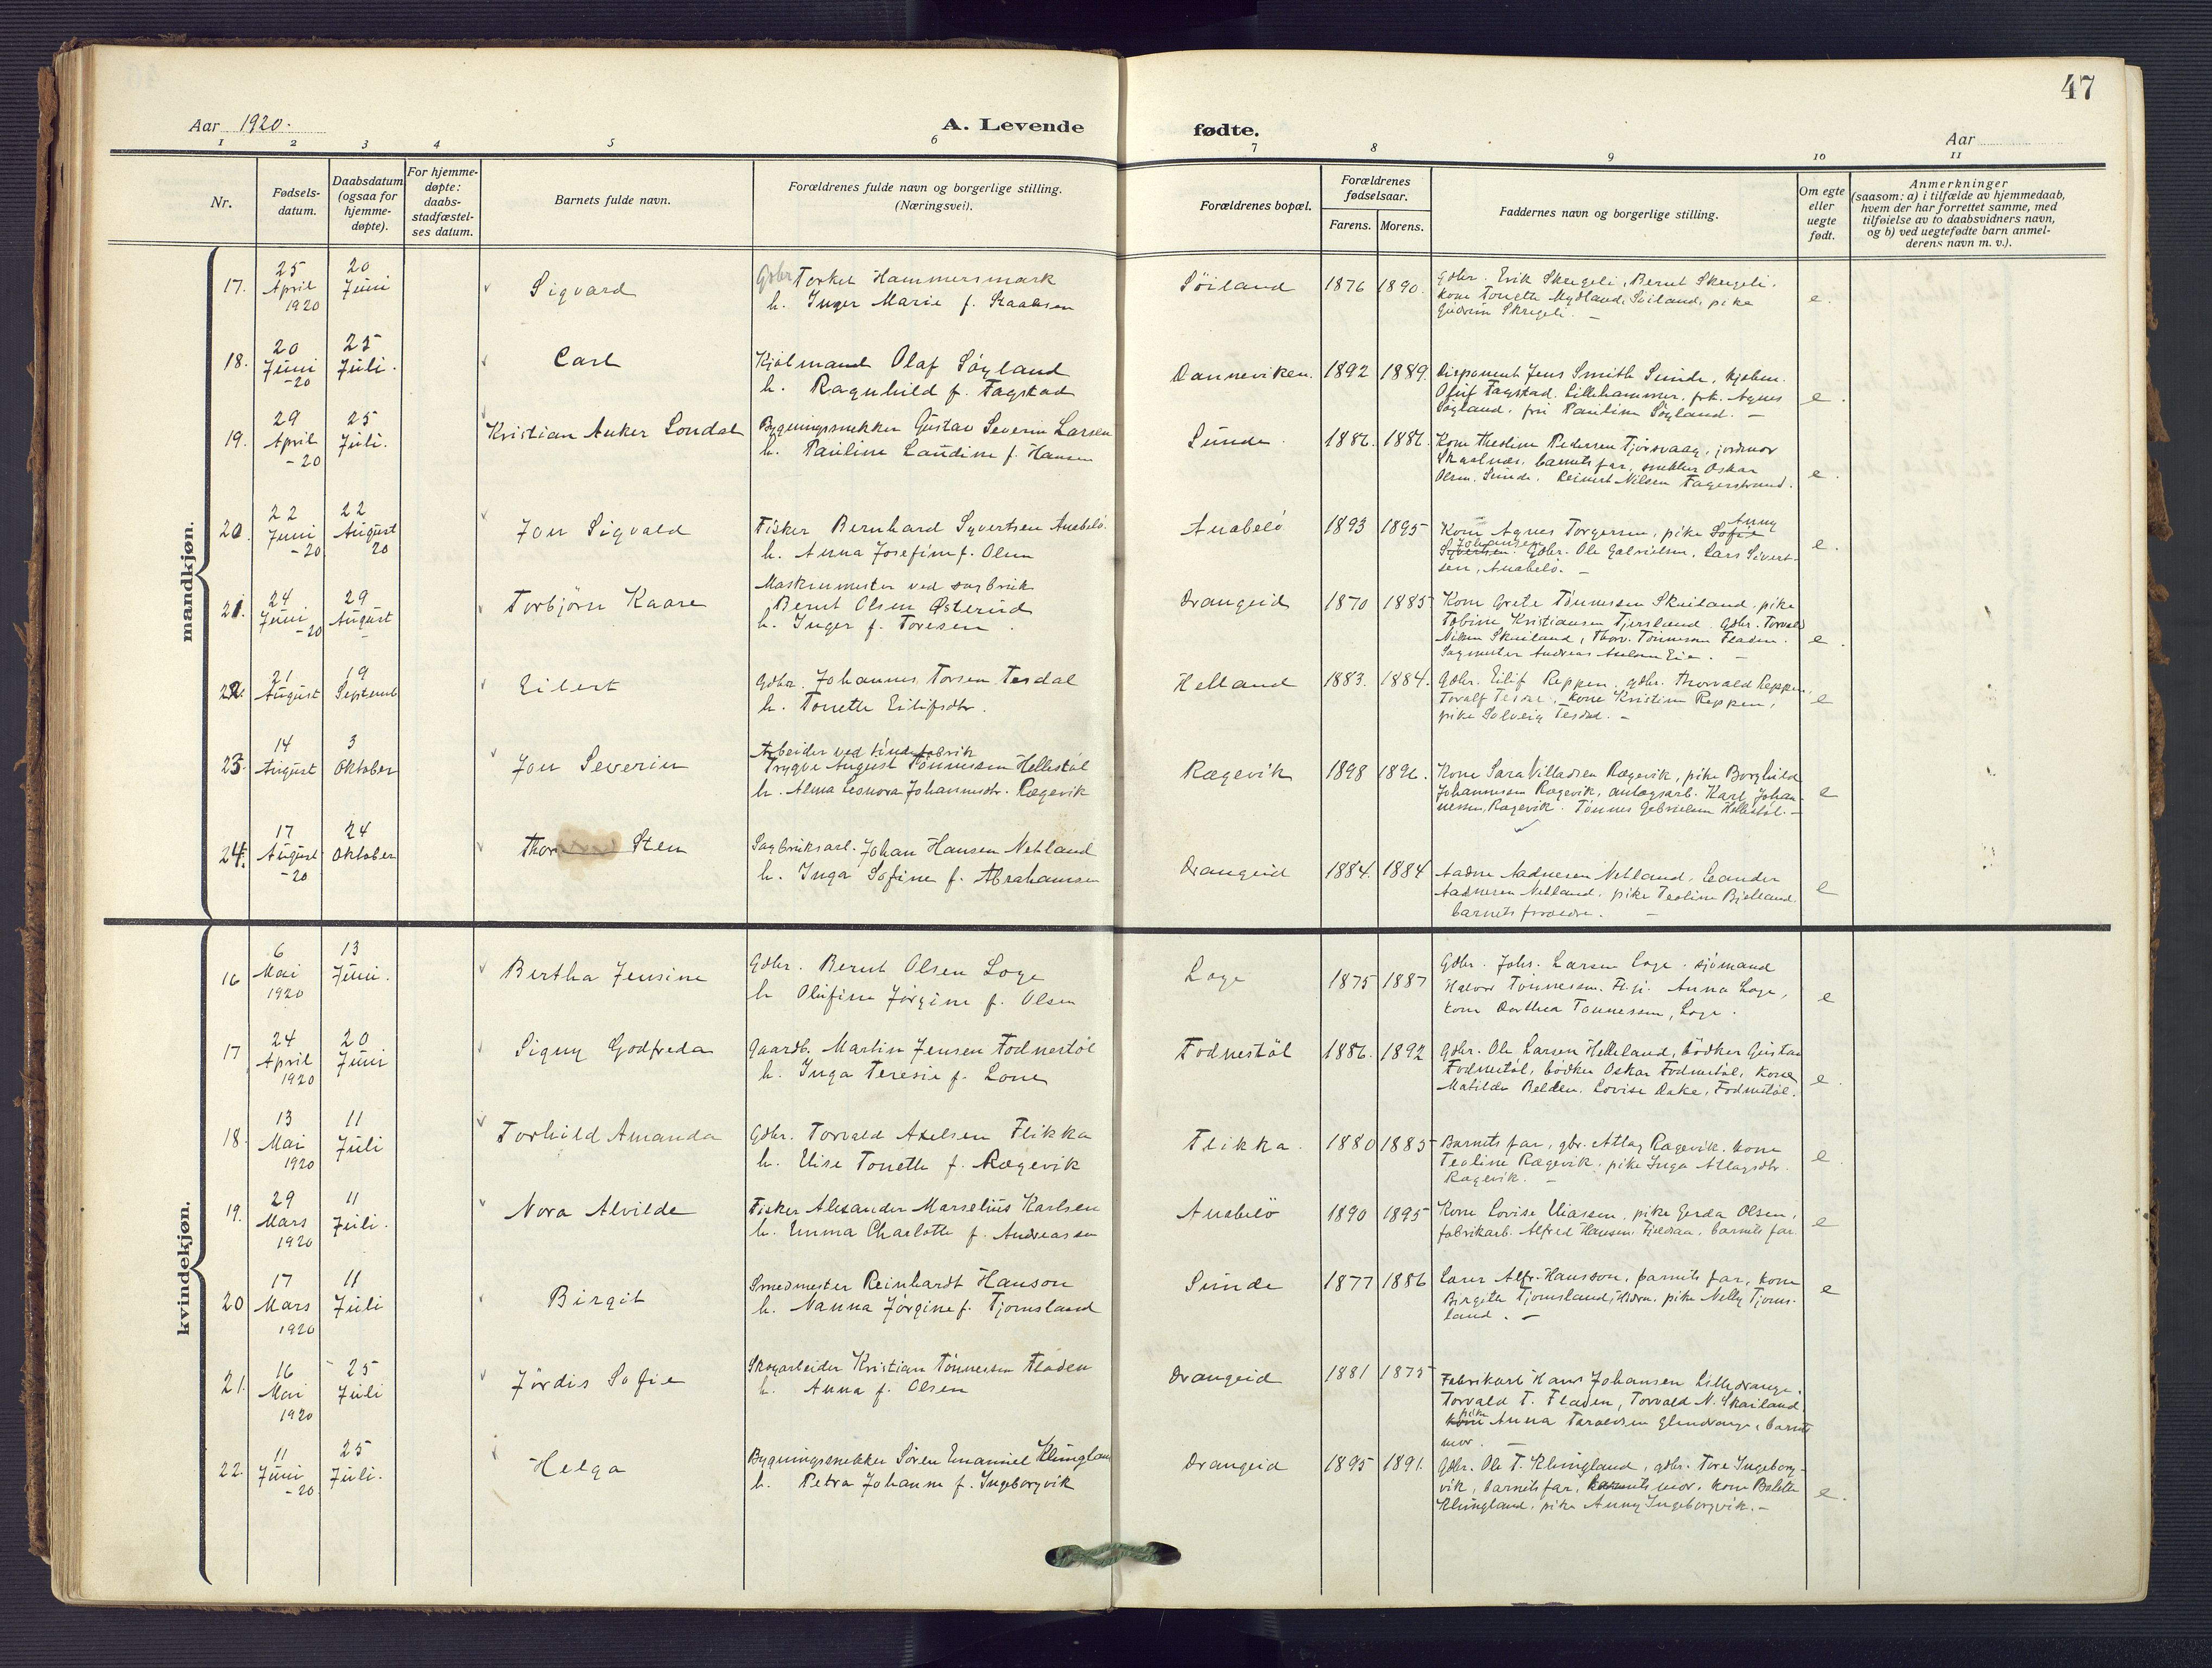 47
Aar 1920.
A. Levende
fødte.
Aar
1 2 3 4 5 6 7 8 9 10 11
Nr.
Fødsels-
datum.
Daabsdatum
(ogsaa for
hjemme-
døpte).
For hjemme-
døpte:
daabs-
stadfæstel-
ses datum.
Barnets fulde navn.
Forældrenes fulde navn og borgerlige stilling.
(Næringsvei).
Forældrenes bopæl.
Forældrenes
fødselsaar.
Farens. Morens.
Faddernes navn og borgerlige stilling.
Om egte
eller
uegte
født.
Anmerkninger
(saasom: a) i tilfælde av hjemmedaab,
hvem der har forrettet samme, med
tilføielse av to daabsvidners navn,
og b) ved uegtefødte barn anmel-
derens navn m. v.).
mandkjøn.
17. 25 April 1920 20 Juni Sigvard
Gdbr Torkel Hammersmark
h. Inger Marie f. Staalesen
Söiland 1876 1890.
Gdbr. Erik Skregeli, Berut Skregeli.
kone Tonette Mydland, Söiland, pike
Gudrun Skregeli. –
e.
18. 20 Juni -20 25 Juli. Carl
Kjölmand Olaf Søyland
h. Ragnhild f. Fagstad
Danneviken. 1892 1889.
Disponent Jens Smith Sunde, kjøbm.
Oluf Fagstad. Lillehammer, frk. Agnes
Søyland. fru Pauline Søyland. –
e.
19. 29 April -20 25 Juli. Kristian Anker Londal
Bygningssnekker Gustav Severin Larsen
h. Pauline Laudine f. Hansen
Sunde. 1886. 1886.
Kone Thesline Pedersen Tjørsvaag, jordmor
Skaalnes, barnets far, snekker Oskar
Olsen. Sunde. Reinert Nilsen Fagerstrand.
e.
20. 22 Juni -20 22 August 20 Jon Sigvald
Fisker Bernhard Syvertsen Anabelö.
h. Anna Josefine f. Olsen
Anabelö 1893 1895
Kone Agnes Torgersen, pike Sofie Anny
Syvertsen Johansen. Gdbr. Ole Gabrielsen, Lars Sivert-
sen, Anabelö. –
e.
21. 24 Juni -20 29 August Torbjörn Kaare
Maskinmester ved sagbruk
Berut Olsen Østerud
h. Inger f. Toresen.
Drangeid 1870 1885
Kone Grete Tönnessen Skuiland, pike
Tobine Kristiansen Tjersland. Gdbr. Torvald
Nilsen Skuiland, Thorv. Tönnessen Fladen.
Sagmester Andreas Eie. –
e.
22. 21 August 19 Septemb Eilert
Gdbr. Johannes Torsen Tesdal
h. Tonette Eilifsdtr.
Helland 1883. 1884.
Gdbr. Eilif Reppen, gdbr. Thorvald Reppen,
Toralf kone Kristine Reppen,
pike Solveig Tesdal. –
e
23. 14 August 3 Oktober Jon Severin
Arbeider ved töndefabrik
Trygve August Tönnessen Hellestöl
h. Alma Leonora Johannesdtr. Rægevik
Rægevik 1898 1896.
Kone Sara Villadsen Rægevik, pike Borghild
Johannessen Rægevik, anlægsarb. Karl Johan-
nessen, Rægevik. Tönnes Gabrielsen Hellestöl. –
e
24. 17 August -20 24 Oktober Thor Sten
Sagbruksarb. Johan Hansen Netland
h. Inga Sofine f. Abrahamsen
Drangeid 1884. 1884
Aadne Aadnesen Netland, Leander
Aadnesen Netland, pike Teoline Bjelland
barnets forældre. –
e
kvindekjøn.
16 6 Mai 1920 13 Juni. Bertha Jensine
Gdbr. Berut Olsen Loge
h Olufine Jörgine f. Olsen
Loge 1875 1887
Gdbr. Johs. Larsen Loge. sjömand
Halvor Tönnessen. Anna Loge,
kone Dorthea Tönnessen, Loge.
e
17 24 April 1920 20 Juni Signy Godfreda
Gaardb. Martin Jensen Fodnestöl
h. Inga Teresie f. Lone
Fodnestöl 1886. 1892
Gdbr. Ole Larsen Helleland, bödker Gustav
Fodnestöl, bödker Oskar Fodnestöl, kone
Matilde Belden. Lovise Dake, Fodnestöl.
e.
18. 13 Mai 1920 11 Juli Torhild Amanda
Gdbr. Torvald Axelsen Flikka
h. Elise Tonette f. Rægevik
Flikka. 1880 1885
Barnets far, gbr. Atlag Rægevik. kone
Teoline Rægevik. pike Inga Atlagsdtr.
Rægevik. –
e.
19. 29 Mars 1920 11 Juli. Nora Alvilde
Fisker Alexander Marselius Karlsen
h. Emma Charlotte f. Andreassen
Anabelö 1890 1895
Kone Lovise Eliassen, pike Gerda Olsen,
fabrikarb. Alfred Hansen, Fjeldsaa, barnets far.
e
20 17 Mars 1920 11 Juli Birgit
Smedmester Reinhardt Hanson
h. Nanna Jörgine f. Tjomsland
Sunde 1877 1886
Lærer Alfr. Hansson, barnets far, kone
Birgitte Tjomsland, Hidra. pike Nelly Tjoms-
land. –
e
21. 16 Mai 1920 25 Juli Jördis Sofie
Skogarbeider Kristian Tönnessen Fladen
h. Anna f. Olsen
Drangeid 1881 1875
Fabrikarb Hans Johansen Lilledrange.
Torvald T. Fladen, Torvald N. Skuiland,
kone pike Anna Taraldsen Glendrange, barnets
mor. –
22. 11 Juni -20 25 Juli. Helga
Bygningssnekker Sören Emanuel Klungland
h. Petra Johanne f. Ingeborgvik
Drangeid 1895 1891.
Gdbr. Ole T. Klungland, gdbr. Tore Ingeborg-
vik, barnets far, barnets mor, kone Bolette
Klungland, pike Anny Ingeborgvik. –
e.